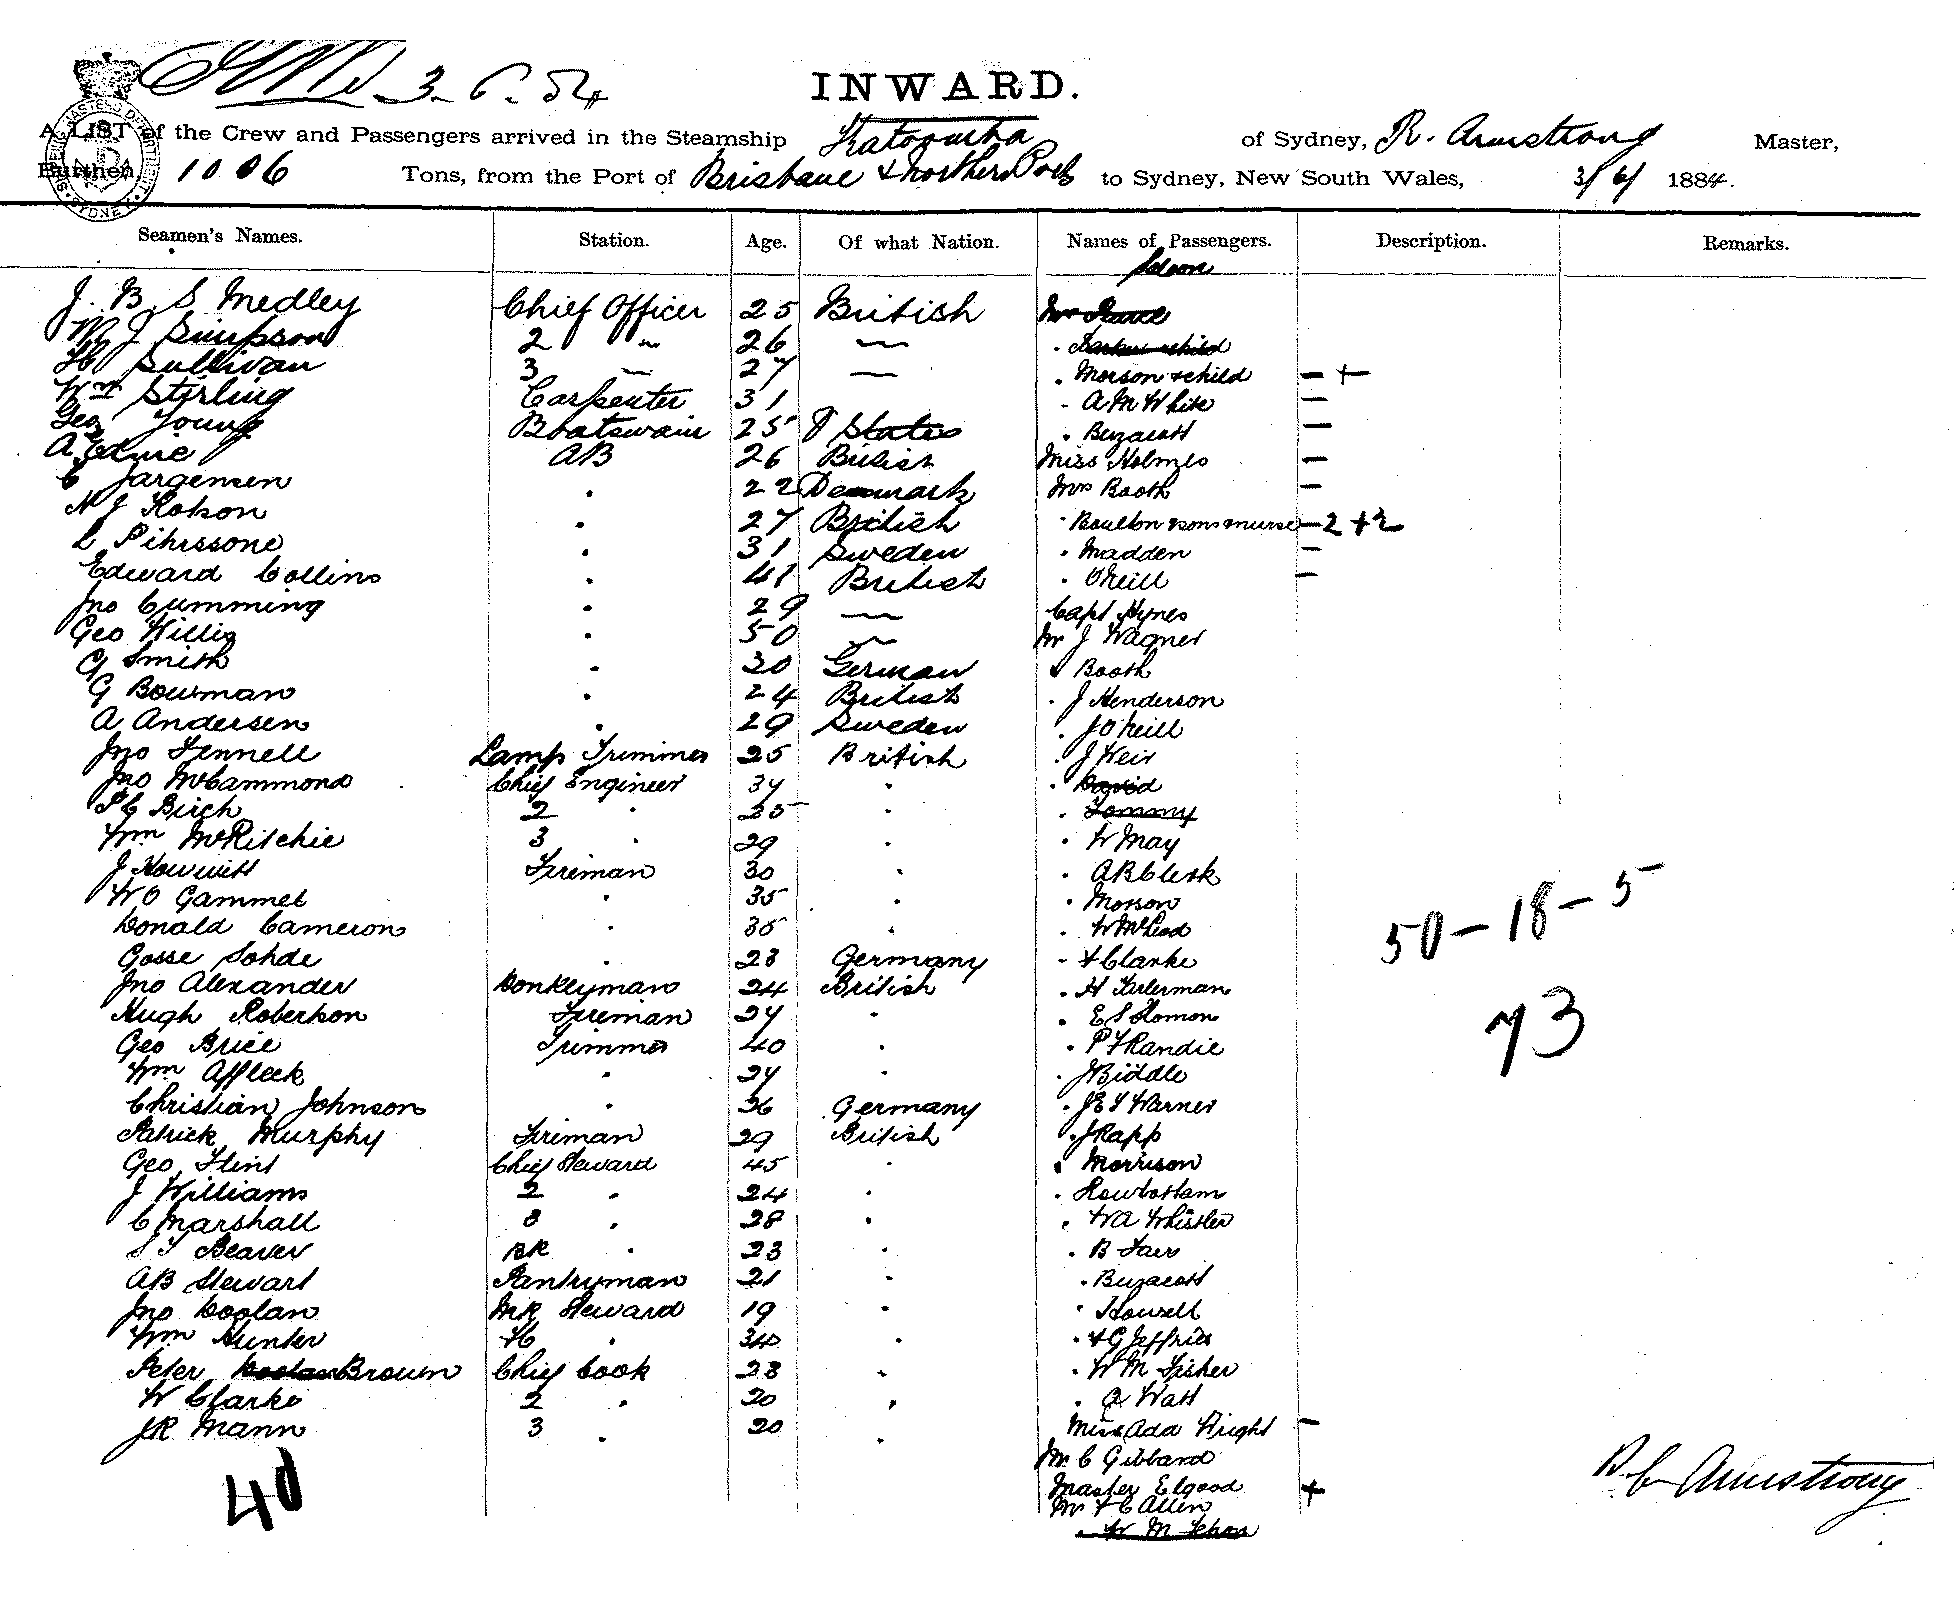 3. 6. 84
INWARD.
A LIST of the Crew and Passengers arrived in the Steamship Katoomba of Sydney, R. Armstrong Master,
Burthen, 1006 Tons, from the Port of Brisbane & Northern Ports to Sydney, New South Wales, 3/6/ 1884.
Seamen's Names. Station. Age. Of what Nation. Names of Passengers. Description. Remarks.
Saloon
J. B. S Medley Chief Officer 25 British Mrs
W J Simpson 2 " 26 " child
Sullivan 3 " 27 " . Morson & child – +
Wm Stirling Carpenter 31 . A M White –
Geo Young Boatswain 25 U States . Buzacott –
A AB 26 British Miss Holmes –
C Jargensen . 22 Denmark Mrs Booth –
N J Robson . 27 British . Boulton sons nurse – 2 + 2
L Pihrssone . 31 Sweden . Madden –
Edward Collins . 41 British . O'Neill –
Jno Cumming . 29 " Capt Hynes
Geo Willis . 50 " Mr J Wagner
G Smith . 30 German . Booth
G Bowman . 24 British . J Henderson
A Andersen . 29 Sweden . J O'Neill
Jno Fennell Lamp Trimmer 25 British . J Weir
Jno McCammond Chief Engineer 34 . . David
P C Birch 2 . 25 . . Tommy
Wm McRitchie 3 . 29 . . W May
J Howitt Fireman 30 . . A B Clerk
W O Gammel . 35 . . Morson
Donald Cameron . 35 . . W McLeod
Gosse Sohde . 23 Germany . F Clarke
50 – 18 – 5
Jno Alexander Donkeyman 24 British . H
Hugh Robertson Fireman 24 . . E S Solomon
Geo Brice Trimmer 40 . . P F Randie
73
Wm Affleck . 24 . J Biddle
Christian Johnson . 36 Germany . J E S Warner
Patrick Murphy Fireman 29 British . J Rapp
Geo Flint Chief Steward 45 . . Morrison
J Williams 2 . 24 . . Rowbottam
C Marshall 3 . 28 . . W A Whistler
S T Beaver BR . 23 . . B
A B Stewart Pantryman 21 . . Buzacott
Jno Doolan MR Steward 19 . . Howell
Wm Hunter . 34 . . F G Jeffries
Peter Doolan Brown Chief Cook 23 . . W M Fisher
W Clarke 2 . 20 . . A Watt
J R Mann 3 . 20 . Miss Ada Wright –
40
Mr C Gibbard
Master Elgood +
Mr F C Allen
. W M
Armstrong